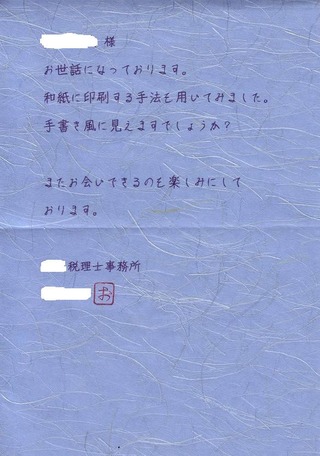 様
お世話になっております。
和紙に印刷する手法を用いてみました。
手書き風に見えますでしょうか？
またお会いできるのを楽しみにして
おります。
税理士事務所
お